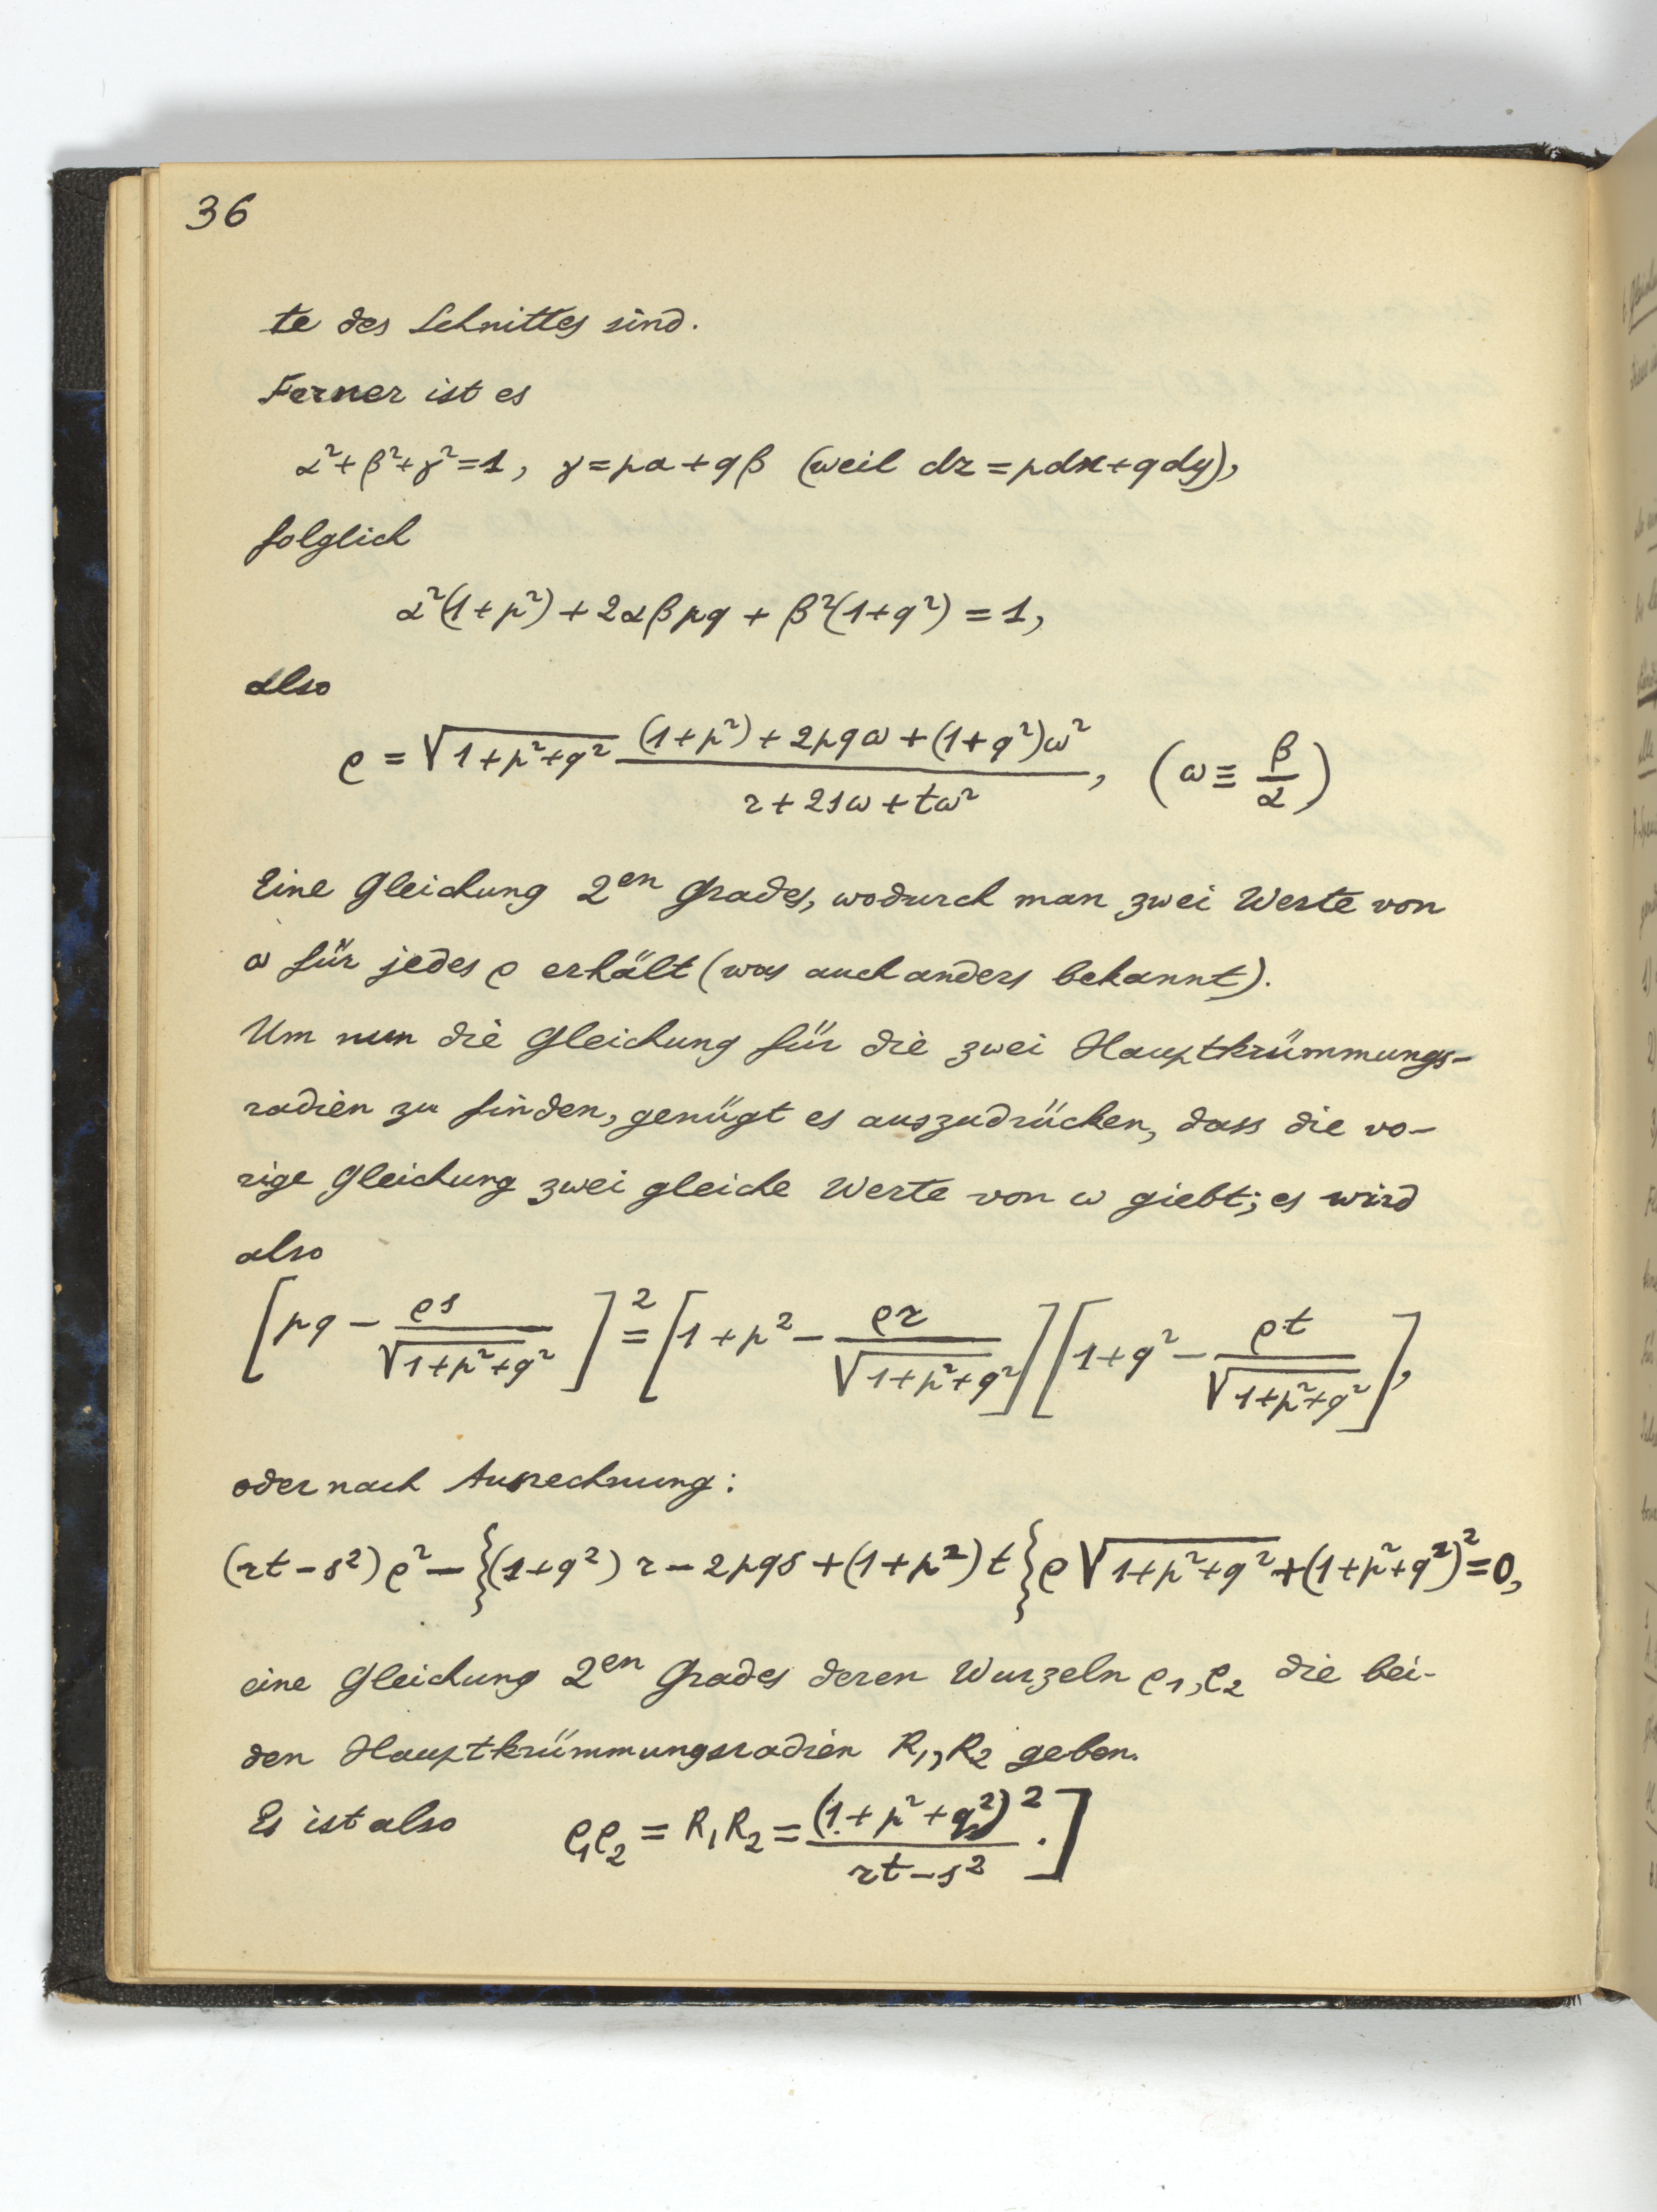 36
te des Schnittes sind.
Ferner ist es
α²+β²+γ²=1, γ=pα+qβ (weil dz=pdx+qdy),
folglich
α²(1+p²)+2αβpq+β²(1+q²)=1,
also
ρ = √(1+p²+q²) ((1+p²)+2pqω+(1+q²)ω²)/(r+2sω+tω²), (ω ≡ β/α)
Eine Gleichung 2en Grades, wodurch man zwei Werte von
ω für jedes ρ erhält (was auch anders bekannt).
Um nun die Gleichung für die zwei Hauptkrümmungs-
radien zu finden, genügt es auszudrücken, dass die vo-
rige Gleichung zwei gleiche Werte von ω giebt; es wird
also
[pq − ρs/√(1+p²+q²)]² = [1+p² − ρr/√(1+p²+q²)][1+q² − ρt/√(1+p²+q²)],
oder nach Ausrechnung:
(rt−s²)ρ² − {(1+q²)r−2pqs+(1+p²)t}ρ√(1+p²+q²)+(1+p²+q²)²=0,
eine Gleichung 2en Grades deren Wurzeln ρ₁,ρ₂ die bei-
den Hauptkrümmungsradien R₁,R₂ geben.
Es ist also ρ₁ρ₂ = R₁R₂ = (1+p²+q²)²/(rt−s²).]